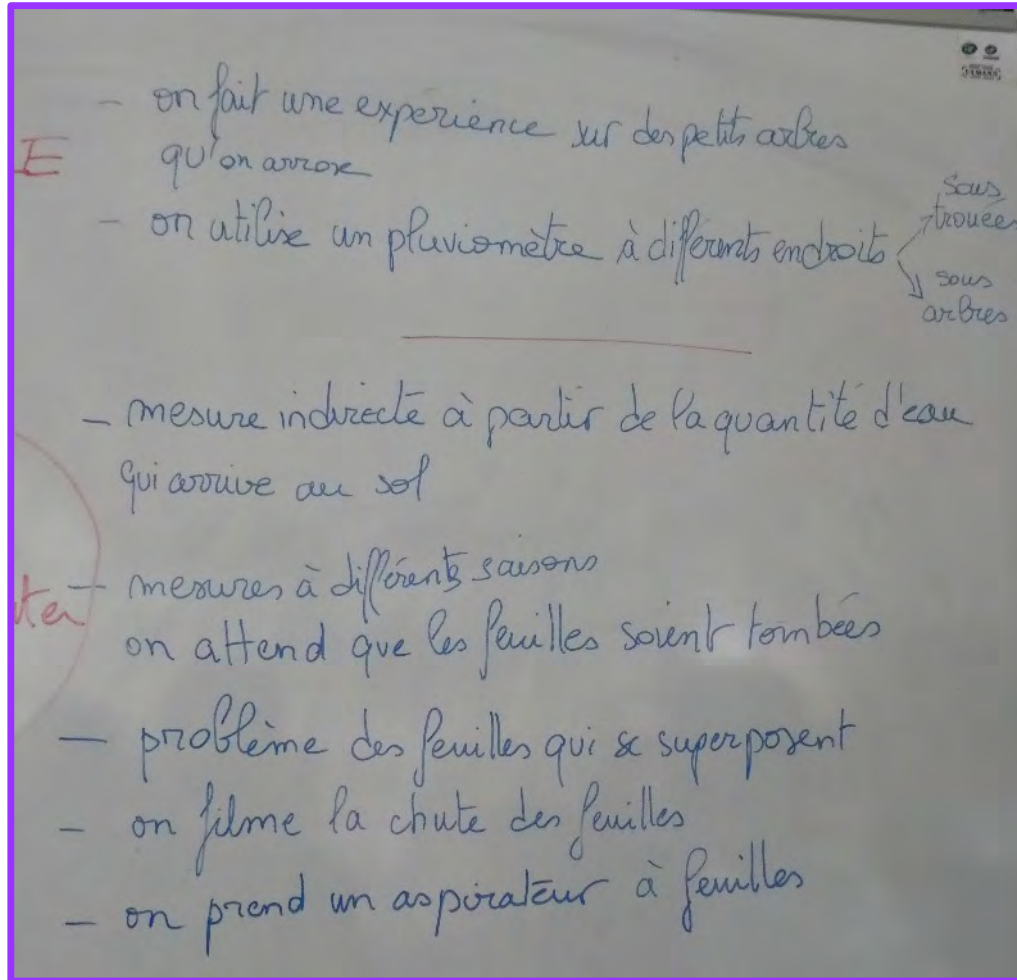 - on fait une expérience sur des petits arbres
E
qu'on arrose
- on utilise un pluviomètre à différents endroits
sous
trouées
sous
arbres
- mesure indirecte à partir de la quantité d'eau
qui arrive au sol
- mesures à différents saisons
ter
on attend que les feuilles soient tombées
- problème des feuilles qui se superposent
- on filme la chute des feuilles
- on prend un aspirateur à feuilles